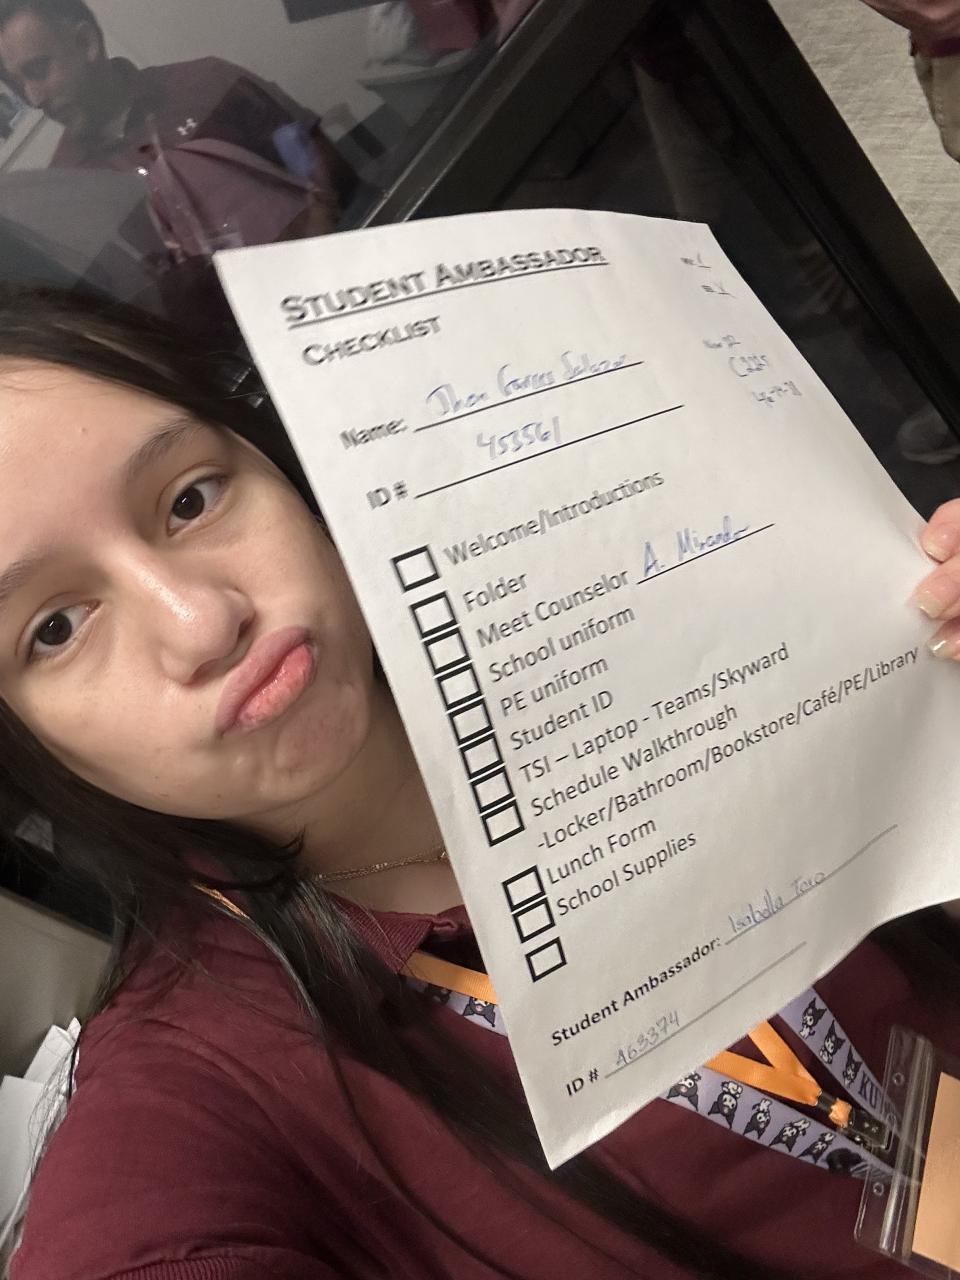 STUDENT AMBASSADOR
CHECKLIST
Name: Salazar
ID # 453561
C225
Welcome/Introductions
Folder
Meet Counselor A. Miranda
School uniform
PE uniform
Student ID
TSI – Laptop - Teams/Skyward
Schedule Walkthrough
-Locker/Bathroom/Bookstore/Café/PE/Library
Lunch Form
School Supplies
Student Ambassador: Isabella Toro
ID # 463374